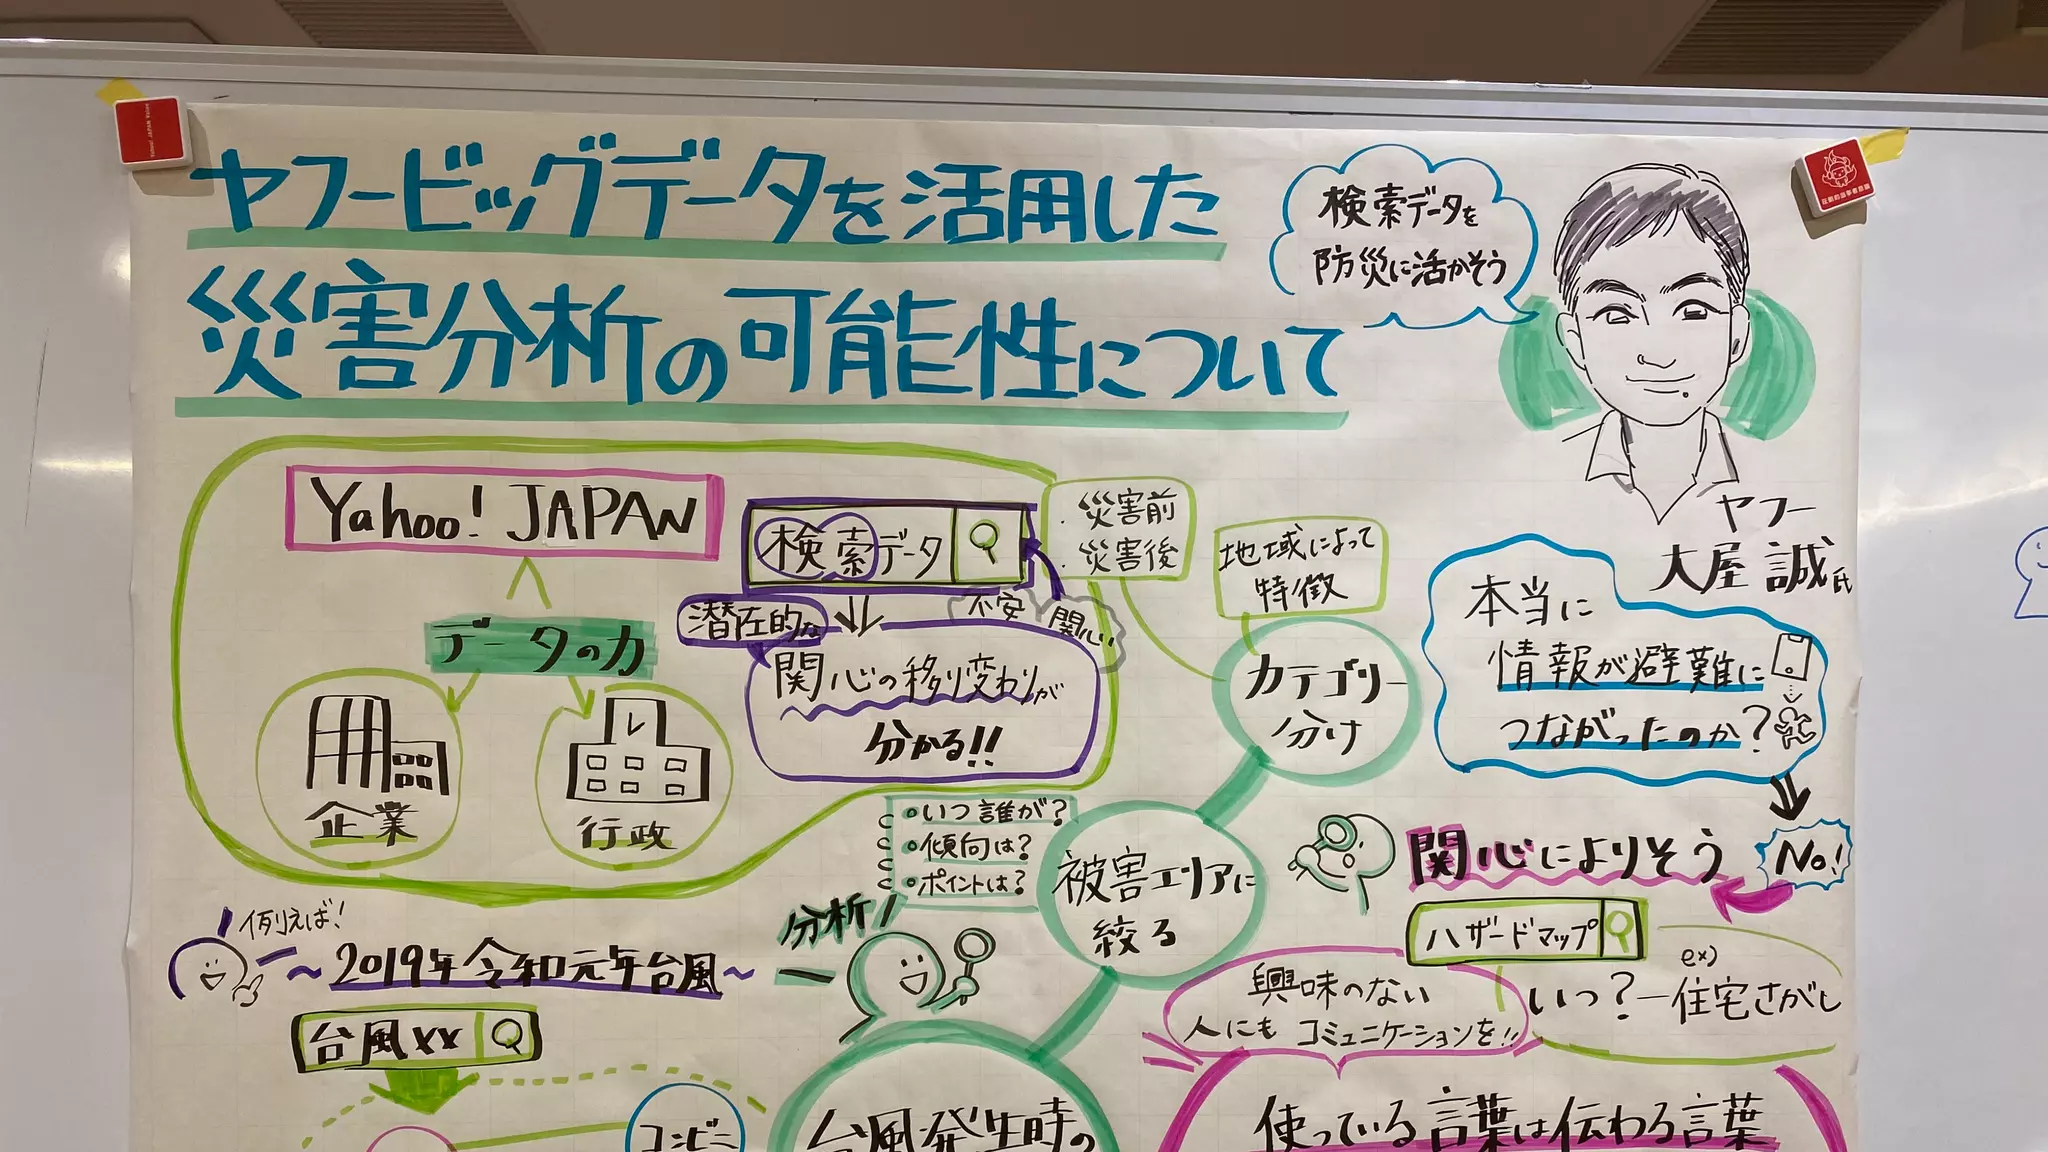 ヤフービッグデータを活用した
災害分析の可能性について
検索データを
防災に活かそう
ヤフー
大屋 誠氏
Yahoo! JAPAN
データの力
企業
行政
検索データ
不安
関心
潜在的な
関心の移り変わりが
分かる!!
・災害前
・災害後
地域によって
特徴
カテゴリー
分け
被害エリアに
絞る
いつ誰が?
傾向は?
ポイントは?
分析!
本当に
情報が避難に
つながったのか?
No!
関心によりそう
ハザードマップ
ex)
いつ?ー住宅さがし
興味のない
人にも コミュニケーションを!!
使っている言葉は伝わる言葉
例えば!
~2019年令和元年台風~
台風××
コンビニ
台風発生時の